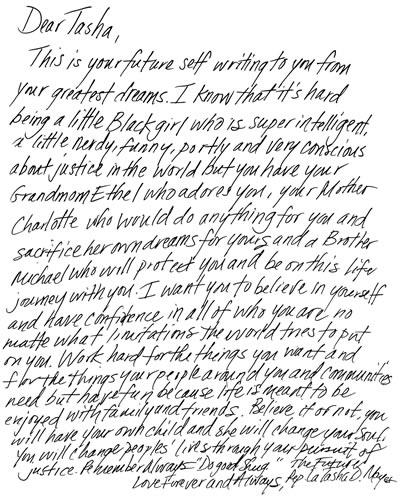 Dear Tasha,
This is your future self writing to you from
your greatest dreams. I know that it's hard
being a little Black girl who is super intelligent,
a little nerdy, funny, portly and very conscious
about justice in the world but you have your
Grandmom Ethel who adores you, your Mother
Charlotte who would do anything for you and
sacrifice her own dreams for yours and a Brother
Michael who will protect you and be on this life
journey with you. I want you to believe in yourself
and have confidence in all of who you are no
matte what limitations the world tries to put
on you. Work hard for the things you want and
for the things your people around you and communities
need but have fun because life is meant to be
enjoyed with family and friends. Believe it or not, you
will have your own child and she will change your soul.
You will change peoples' lives through your pursuit of
justice. Remember Always "Do good Sing
Love Forever and Always, The Future
Rep LaTasha D. Mayes